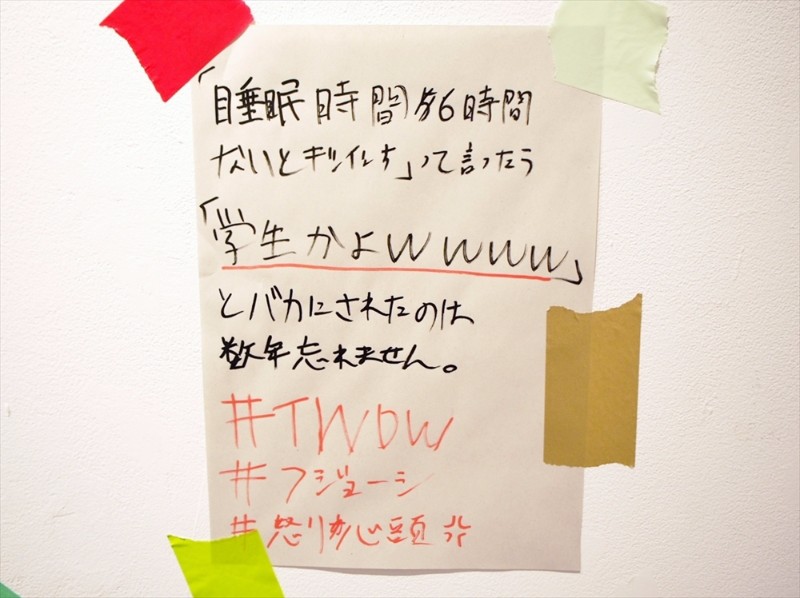 「睡眠時間が6時間
ないとキツイです」って言ったら
「学生かよwwww」
とバカにされたのは
数年忘れません。
#TWDW
#フジョーシ
#怒り心頭